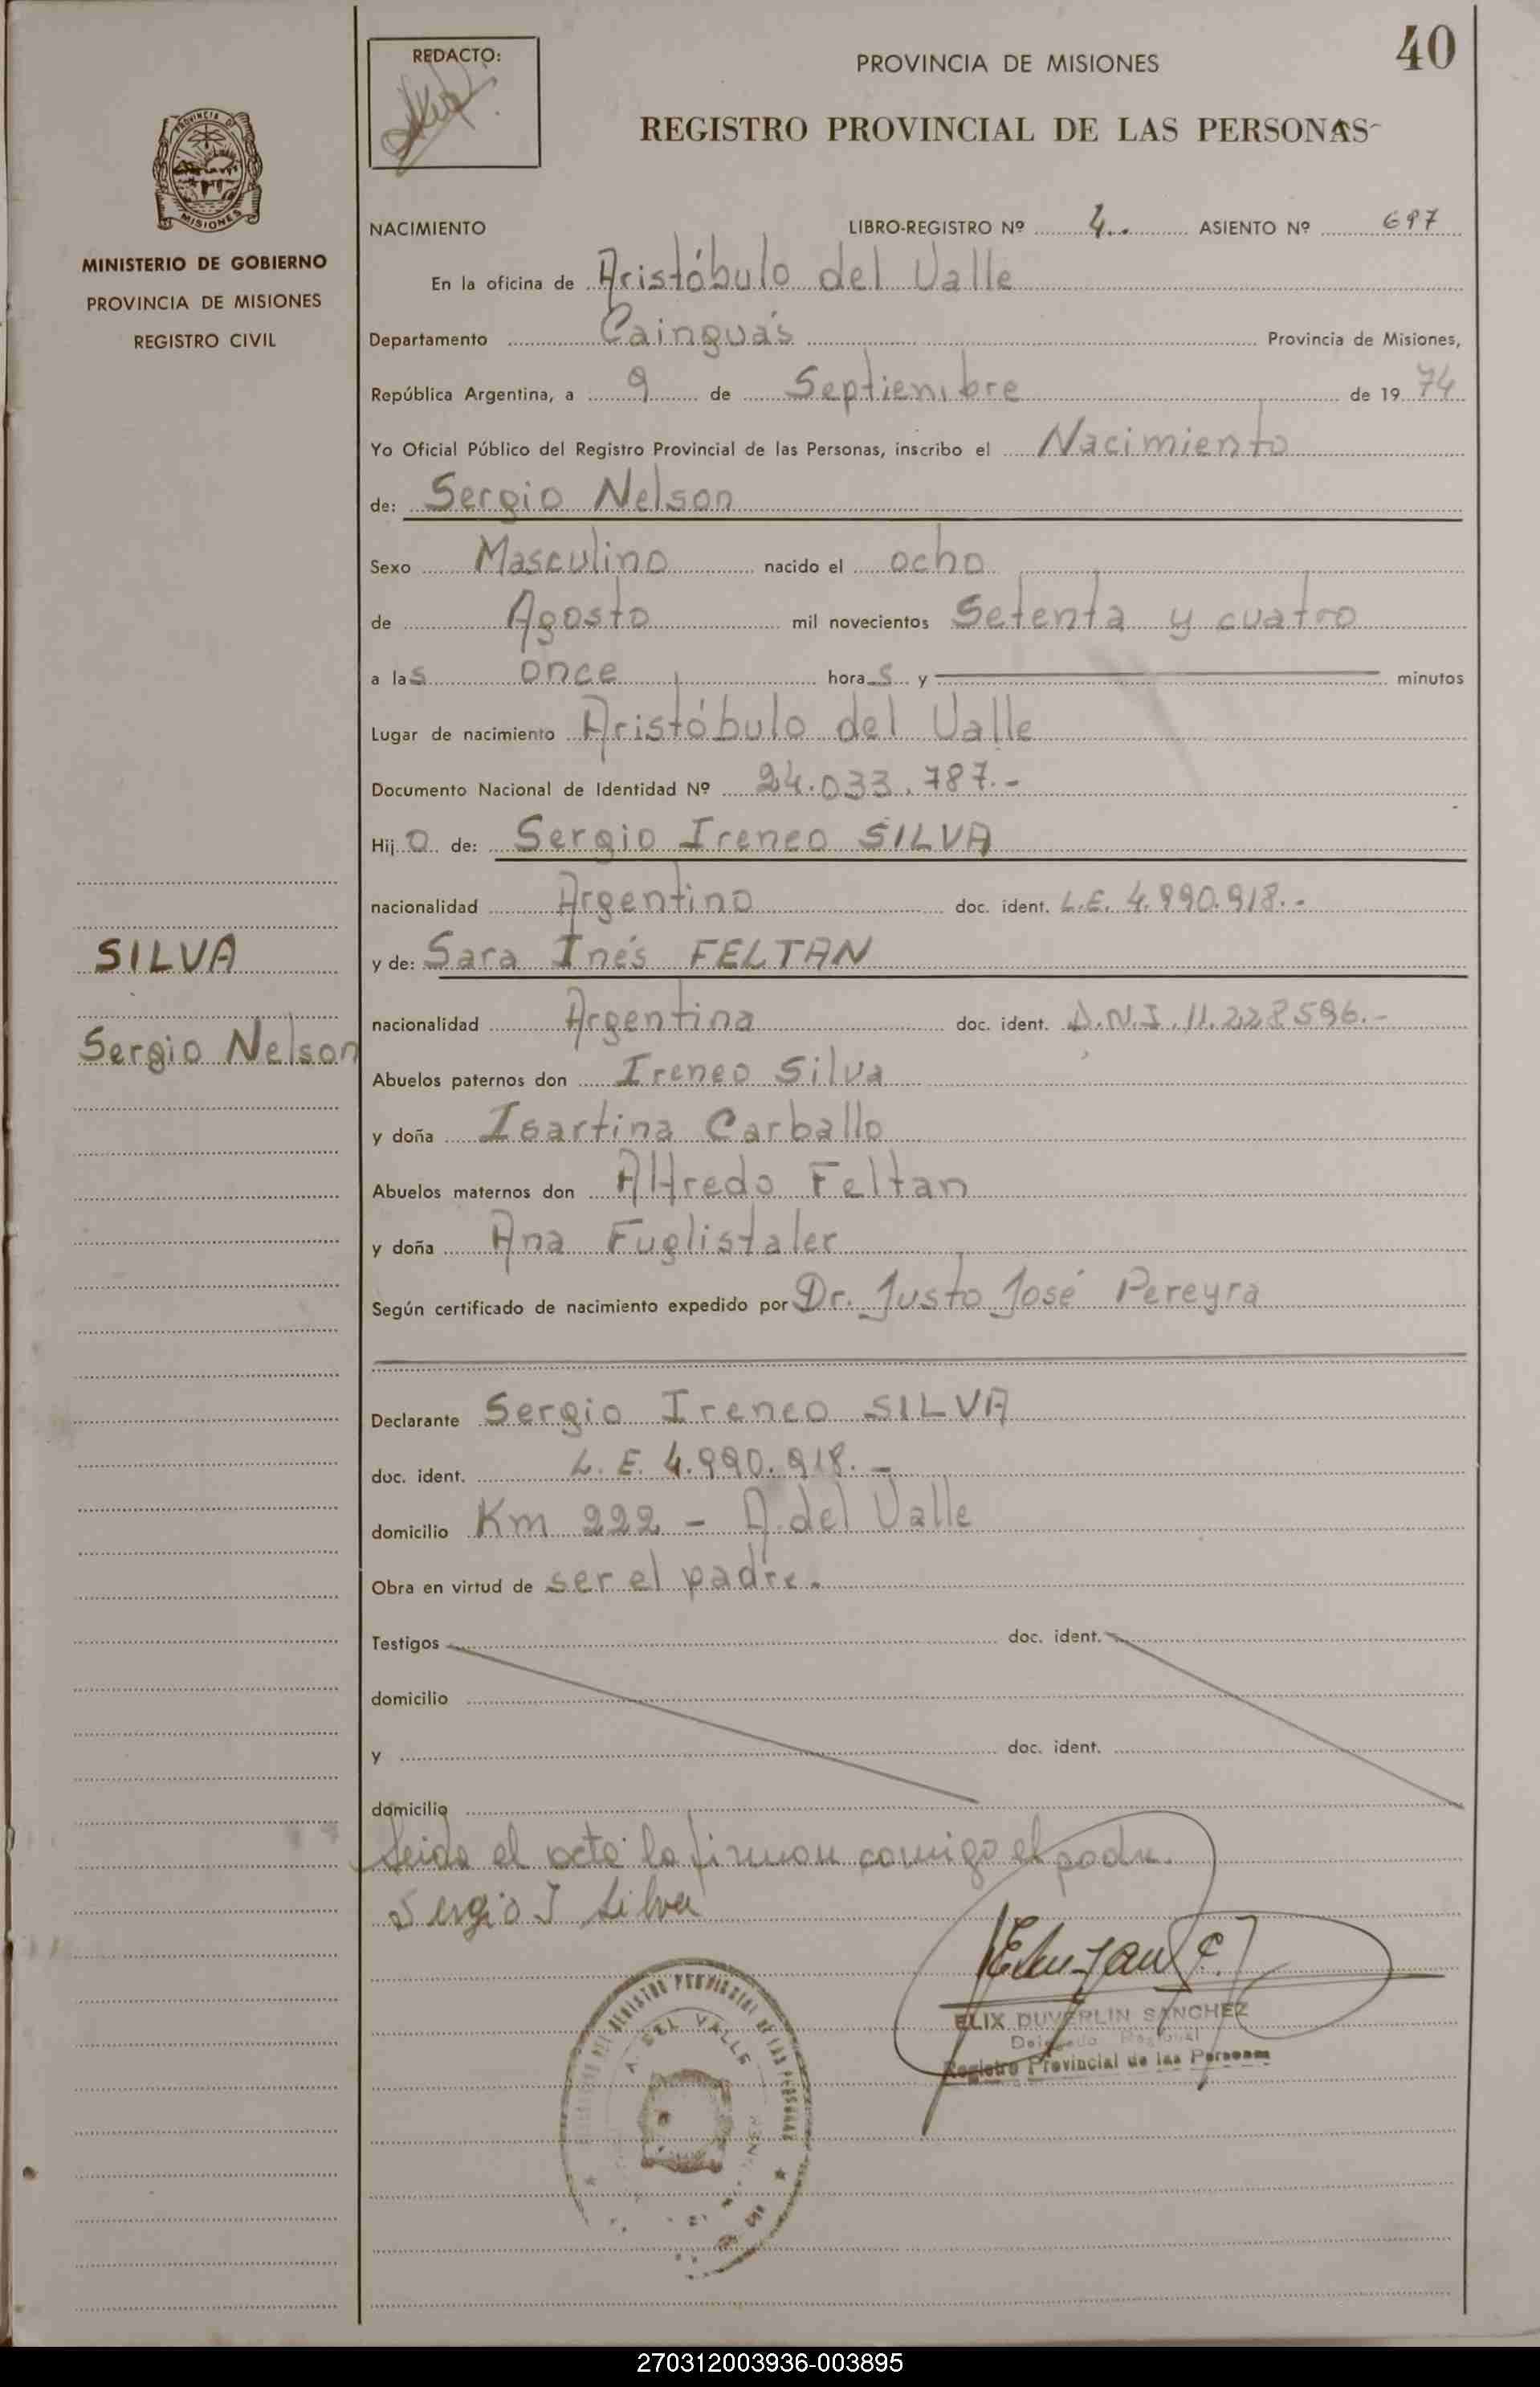 40
REDACTO:
PROVINCIA DE MISIONES
REGISTRO PROVINCIAL DE LAS PERSONAS
PROVINCIA DE
MISIONES
MINISTERIO DE GOBIERNO
PROVINCIA DE MISIONES
REGISTRO CIVIL
NACIMIENTO LIBRO-REGISTRO Nº 4 ASIENTO Nº 697
En la oficina de Aristóbulo del Valle
Departamento Cainguás Provincia de Misiones,
República Argentina, a 9 de Septiembre de 19 74
Yo Oficial Público del Registro Provincial de las Personas, inscribo el Nacimiento
de: Sergio Nelson
Sexo Masculino nacido el ocho
de Agosto mil novecientos Setenta y cuatro
a las once horas y minutos
Lugar de nacimiento Aristóbulo del Valle
Documento Nacional de Identidad Nº 24.033.787.-
Hijo de: Sergio Ireneo SILVA
nacionalidad Argentino doc. ident. L.E. 4.990.918.-
SILVA
y de: Sara Inés FELTAN
nacionalidad Argentina doc. ident. D.N.I. 11.228596.-
Sergio Nelson
Abuelos paternos don Ireneo Silva
y doña Isartina Carballo
Abuelos maternos don Alfredo Feltan
y doña Ana Fuglistaler
Según certificado de nacimiento expedido por Dr. Justo José Pereyra
Declarante Sergio Ireneo SILVA
doc. ident. L. E. 4.990.918.-
domicilio Km 222 - A. del Valle
Obra en virtud de ser el padre.
Testigos doc. ident.
domicilio
y doc. ident.
domicilio
Leida el acta la firman comigo el padre.
Sergio I Silva
ELIX DUVERLIN SANCHEZ
Delegado Regional
Registro Provincial de las Personas
REGISTRO PROVINCIAL DE LAS PERSONAS
A. DEL VALLE
270312003936-003895